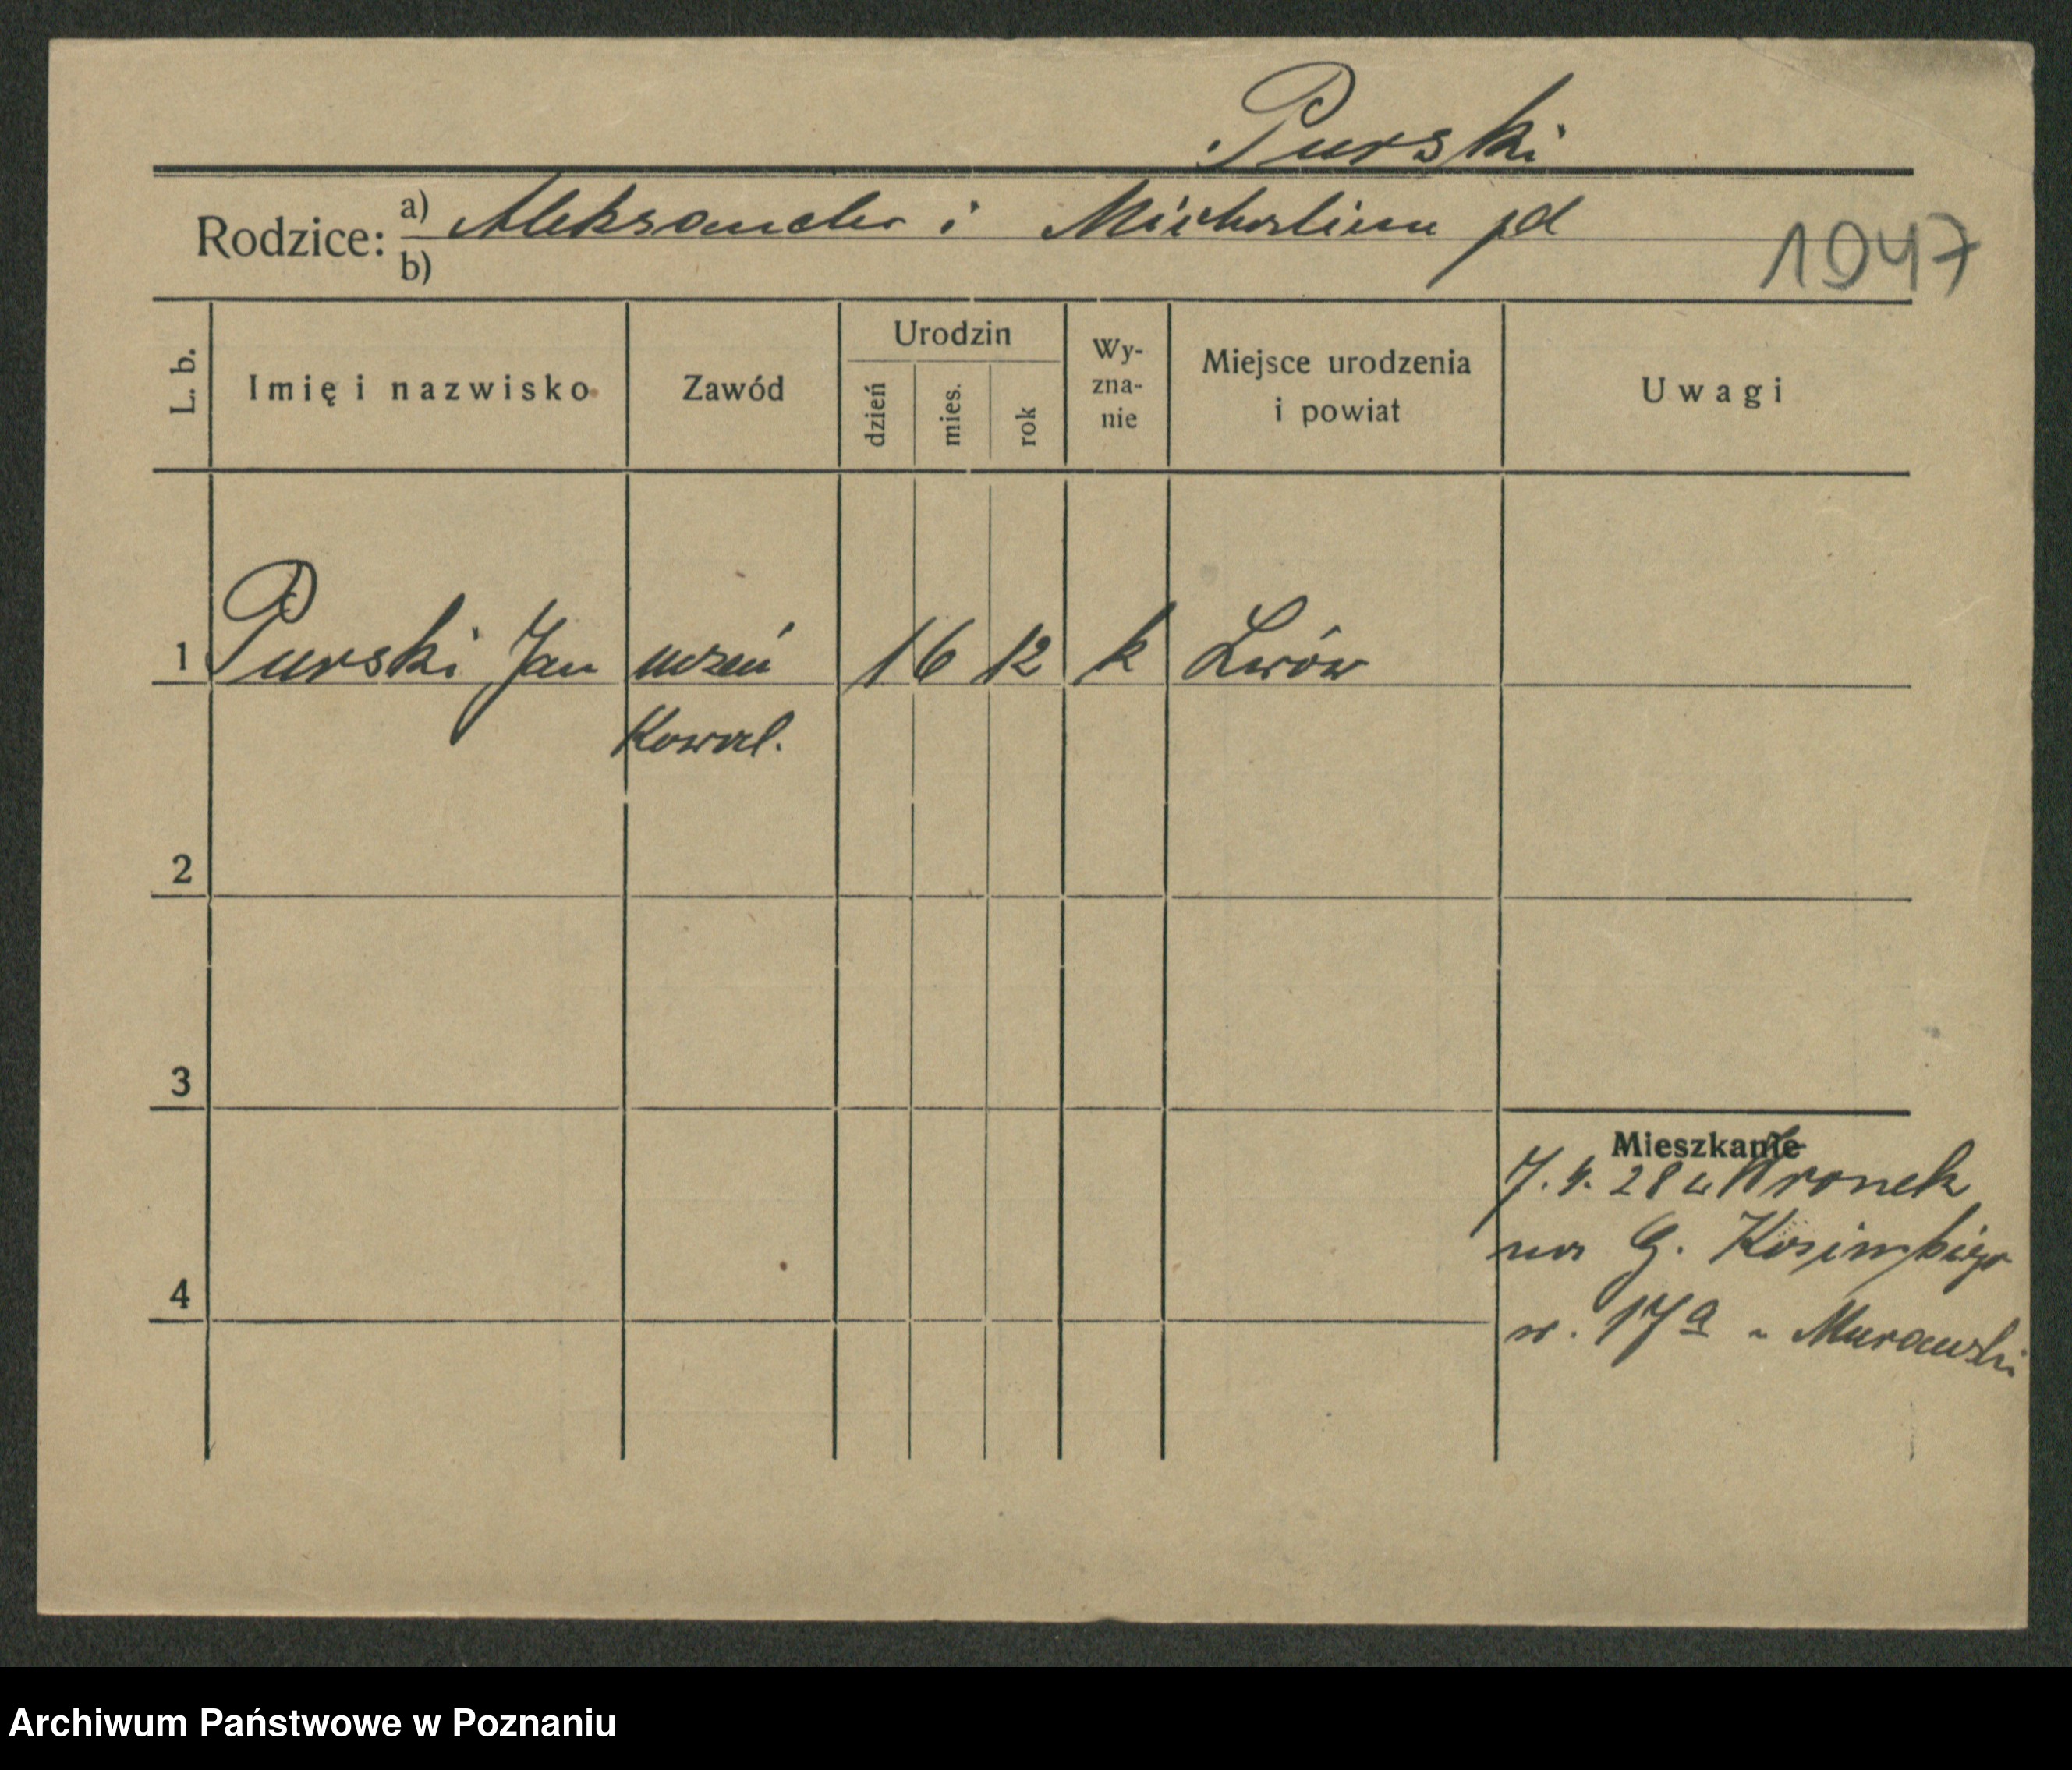 Purski
Rodzice: a) Aleksander i Michalina pd
b)
1947
L. b. Imię i nazwisko Zawód Urodzin dzień mies. rok Wy-zna-nie Miejsce urodzenia i powiat Uwagi
1 Purski Jan uczeń 1 6 12 k Lwów
Kowal.
2
3
4
Mieszkanie
7. 4. 28 z Wronek
na G.
nr. 17a - Murawski
Archiwum Państwowe w Poznaniu